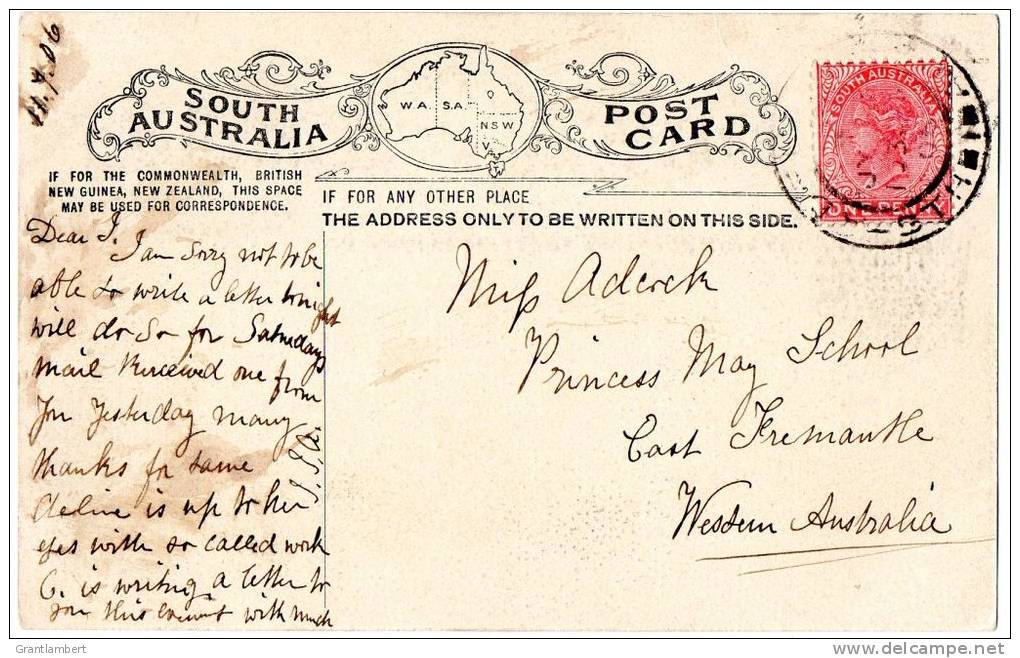 SOUTH
AUSTRALIA
W.A. S.A. NSW V.
POST
CARD
IF FOR THE COMMONWEALTH, BRITISH
NEW GUINEA, NEW ZEALAND, THIS SPACE
MAY BE USED FOR CORRESPONDENCE.
IF FOR ANY OTHER PLACE
THE ADDRESS ONLY TO BE WRITTEN ON THIS SIDE.
SOUTH AUSTRALIA
ONE PENNY
Dear I. I am sorry not to be
able to write a letter tonight
will do so for Saturdays
mail Received one from
you yesterday many
thanks for same
is up to her
eyes with so called work
C. is writing a letter to
you this with much
Miss Adcock
Princess May School
East Fremantle
Western Australia
Grantlambert
delcampe.net